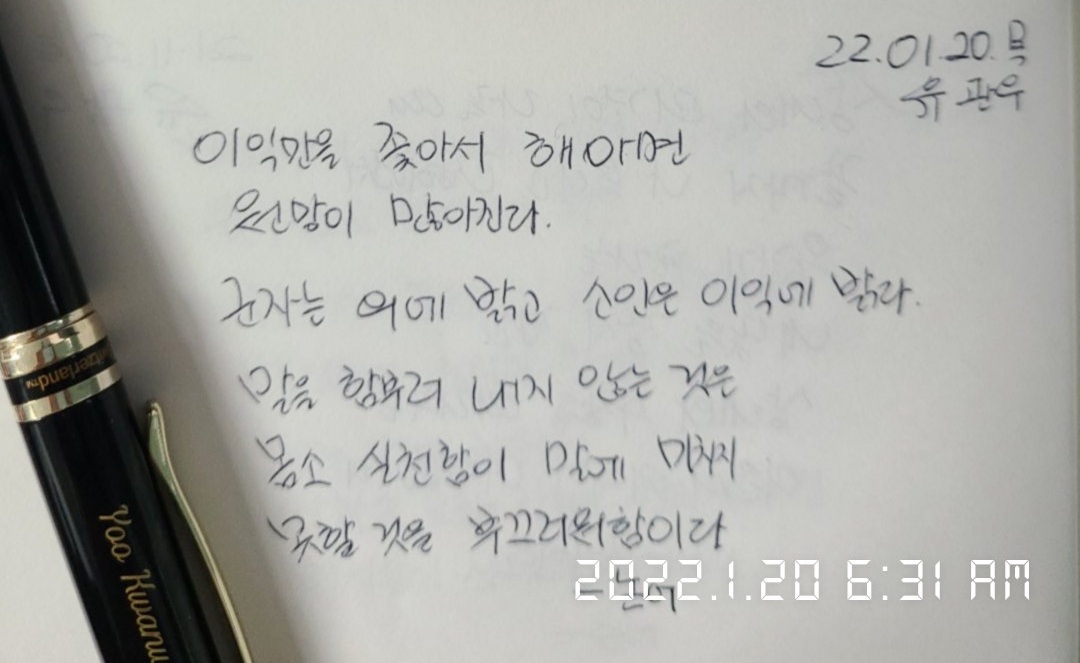 22.01.20.목
유관우
이익만을 쫓아서 행하면
원망이 많아진다.
군자는 의에 밝고 소인은 이익에 밝다.
말을 함부러 내지 않는 것은
몸소 실천함이 말에 미치지
못할 것을 부끄러워함이다
-논어
2022.1.20 6:31 AM
Switzerland™
Yoo Kwanu